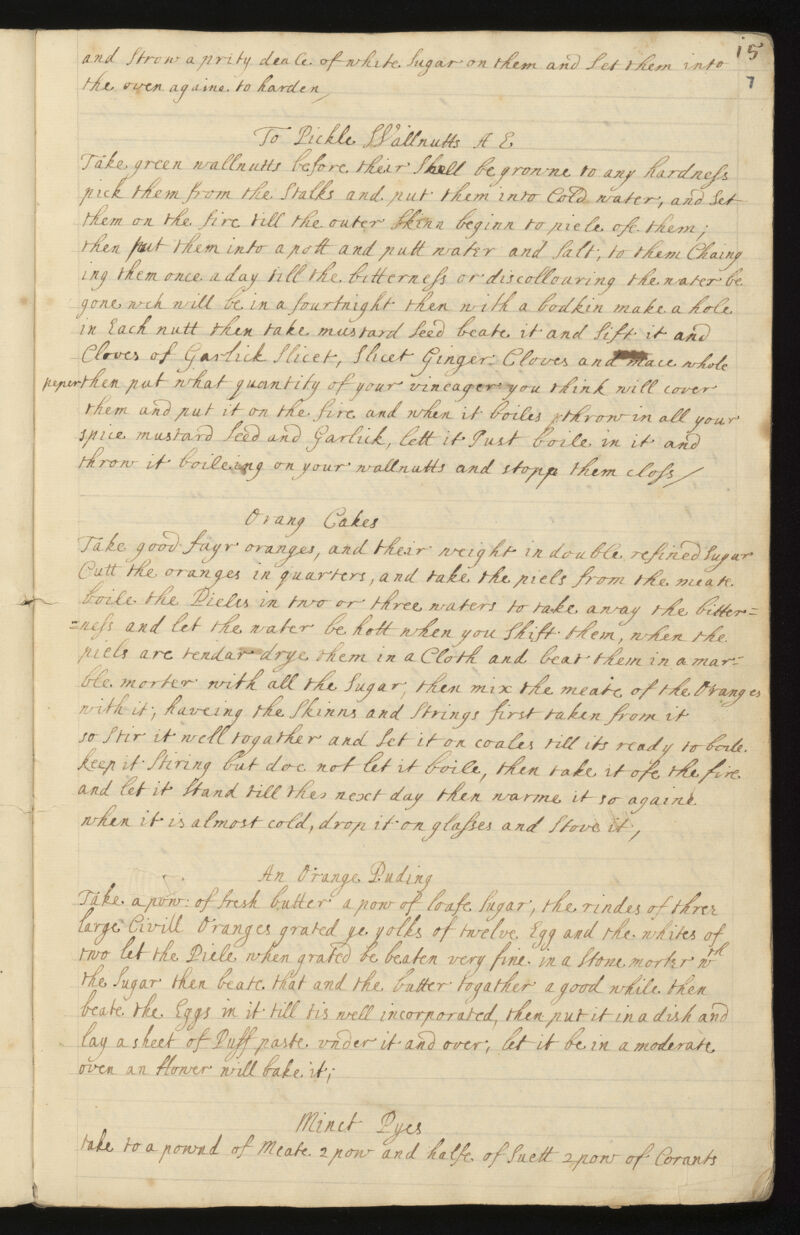 15
7
and Strow a prity deale of white Sugar on them and Set them into
the oven againe to harden
To Pickle Wallnutts A E
Take green wallnutts before their Shell be growne to any hardness
pick them from the Stalks and put them into Cold water, and Set
them on the fire till the outer Skinn beginn to piele ofe them;
then put them into a pott and putt water and Salt, to them Chaing
ing them once a day till the bitterness or discollouring the water be
gone wch will be in a fourtnight then with a bodkin make a hole
in Each nutt then take mustard Seed beate it and Sift it and
Cloves of Garlick Slicet, Slicet Ginger Cloves and mace whole
peper then put what quantity of your vineager you think will cover
them and put it on the fire and when it boiles throw in all your
spice mustard Seed and Garlick, lett it Just boile in it and
throw it boileing on your wallnutts and stopp them closs
Orang Cakes
Take good fayr oranges, and their weight in double refined Sugar
Cutt the oranges in quarters, and take the piels from the meate
boile the Pieles in two or three waters to take away the bitter=
=ness and let the water be hott when you Shift them, when the
piels are tendar drye them in a Cloth and beat them in a mar=
ble morter with all the Sugar, then mix the meate of the Oranges
with it, haveing the Skinns and Strings first taken from it
so Stir it well togather and Set it on coales till its ready to boile
keep it Stiring but doe not let it boile, then take it ofe the fire
and let it Stand till the next day then warme it so againe
when it is almost cold, drop it on glasses and Stove it,
An Orange Puding
Take a pow: of fresh butter a pow of loafe Sugar, the rindes of three
large Civill Oranges grated ye yolks of twelve Egg and the whites of
two let the Piele when grated be beaten very fine in a Stone morter wth
the Sugar then beate that and the butter togather a good while then
beate the Eggs in it till tis well incorporated, then put it in a dish and
lay a sheet of Puff paste vnder it and over, let it be in a moderate
oven an Hower will bake it;
Minct Pyes
take to a pownd of Meate 2 pow and halfe of Suett 2 pow of Corants